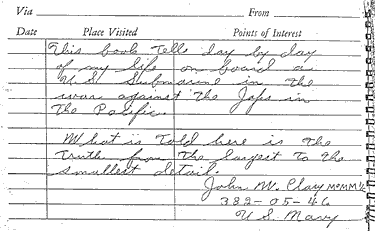 Via From
Date Place Visited Points of Interest
This book tells day by day
of my life on board a
U.S. Submarine in the
war against the Japs in
the Pacific.
What is told here is the
truth from the largest to the
smallest detail.
John M. Clay MoMM
382-05-46
U.S. Navy